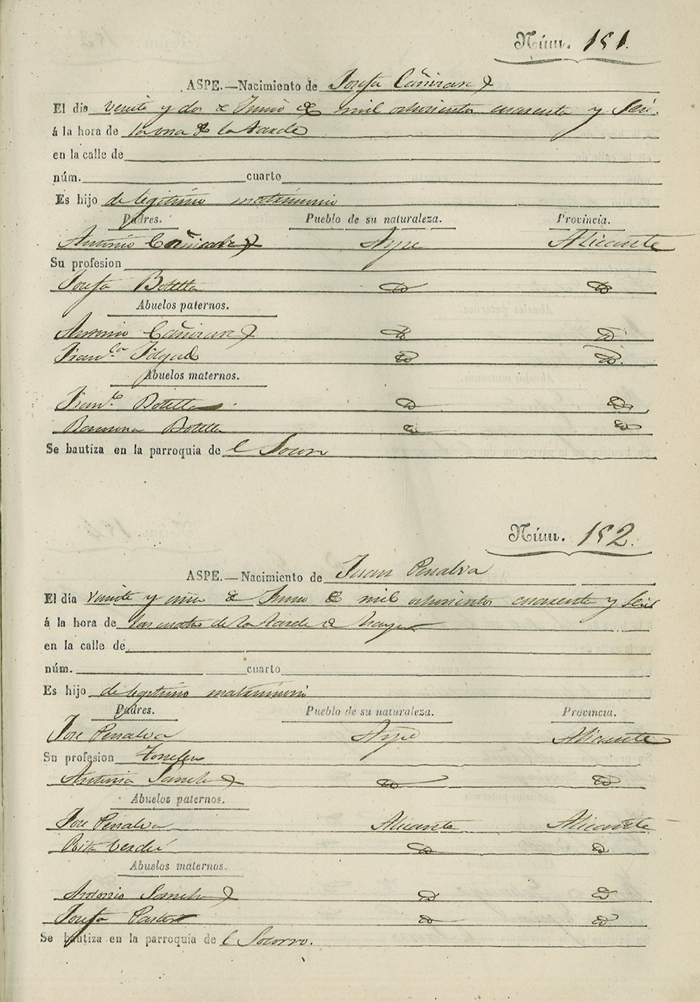 Núm. 151.
ASPE.—Nacimiento de Josefa Cañizares
El día veinte y dos de Junio de mil ochocientos cuarenta y seis.
á la hora de la una de la tarde
en la calle de
núm. cuarto
Es hijo de legitimo matrimonio
Padres. Pueblo de su naturaleza. Provincia.
Antonio Cañizares Aspe Alicante
Su profesion
Josefa Botella D D
Abuelos paternos.
Antonio Cañizares D D
Franca D D
Abuelos maternos.
Franco Botella D D
Botella D D
Se bautiza en la parroquia de l Socorro
Núm. 152.
ASPE.—Nacimiento de Juan Penalva
El día veinte y de Junio de mil ochocientos cuarenta y seis
á la hora de las cuatro de la tarde de
en la calle de
núm. cuarto
Es hijo de legitimo matrimonio
Padres. Pueblo de su naturaleza. Provincia.
Jose Penalva Aspe Alicante
Su profesion
Antonia Sanchez D D
Abuelos paternos.
Jose Penalva Alicante Alicante
Rita Verdú D D
Abuelos maternos.
Antonio Sanchez D D
Josefa Pastor D D
Se bautiza en la parroquia de l Socorro.